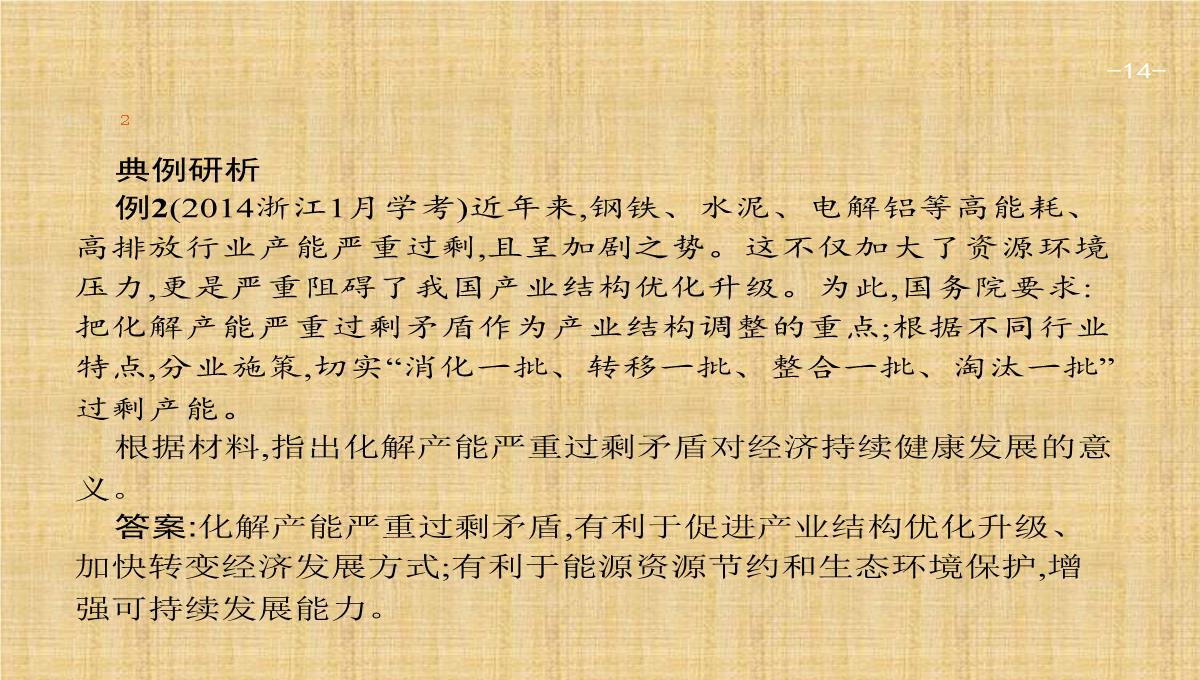 -14-
2
典例研析
例2(2014浙江1月学考)近年来,钢铁、水泥、电解铝等高能耗、
高排放行业产能严重过剩,且呈加剧之势。这不仅加大了资源环境
压力,更是严重阻碍了我国产业结构优化升级。为此,国务院要求:
把化解产能严重过剩矛盾作为产业结构调整的重点;根据不同行业
特点,分业施策,切实“消化一批、转移一批、整合一批、淘汰一批”
过剩产能。
根据材料,指出化解产能严重过剩矛盾对经济持续健康发展的意
义。
答案:化解产能严重过剩矛盾,有利于促进产业结构优化升级、
加快转变经济发展方式;有利于能源资源节约和生态环境保护,增
强可持续发展能力。